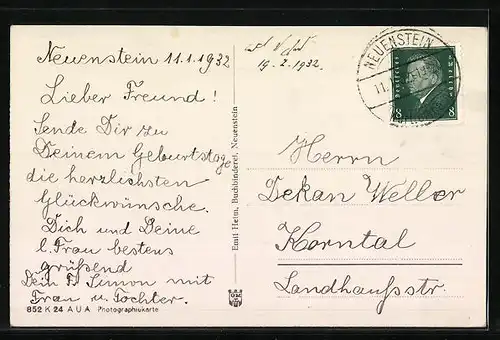 Neuenstein 11.1.1932
Lieber Freund!
Sende Dir zu
Deinem Geburtstage
die herzlichsten
Glückwünsche.
Dich und Deine
l. Frau bestens
grüßend
Dein Fr. Simon mit
Frau u. Tochter.
852 K 24 A U A Photographiekarte
Emil Heim, Buchbinderei, Neuenstein
19.2.1932.
NEUENSTEIN
11.
Deutsches Reich
8 8
Herrn
Dekan Weller
Korntal
Landhausstr.